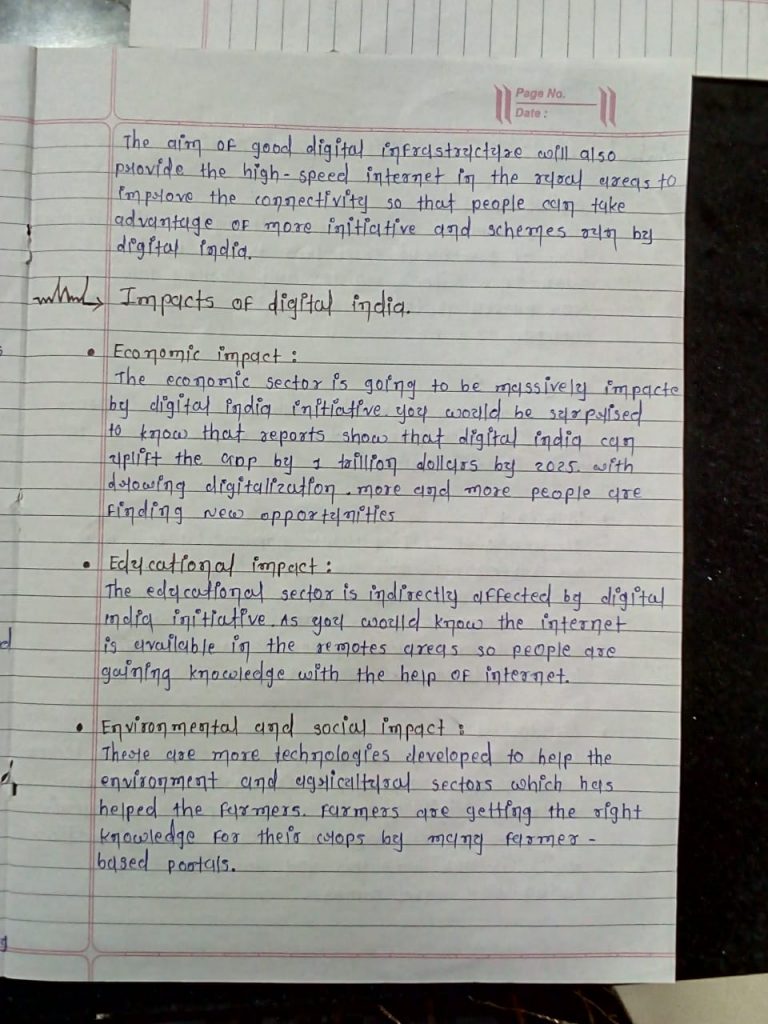 Page No.
Date :
The aim of good digital infrastructure will also
provide the high-speed internet in the rural areas to
improve the connectivity so that people can take
advantage of more initiative and schemes run by
digital india.
Impacts of digital india.
• Economic impact :
The economic sector is going to be massively impacte
by digital india initiative. you would be surprised
to know that reports show that digital india can
uplift the GDP by 1 trillion dollars by 2025. with
growing digitalization. more and more people are
finding new opportunities
• Educational impact :
The educational sector is indirectly affected by digital
india initiative. As you would know the internet
is available in the remotes areas so people are
gaining knowledge with the help of internet.
• Environmental and social impact :
There are more technologies developed to help the
environment and agricultural sectors which has
helped the farmers. Farmers are getting the right
knowledge for their crops by many farmer-
based portals.